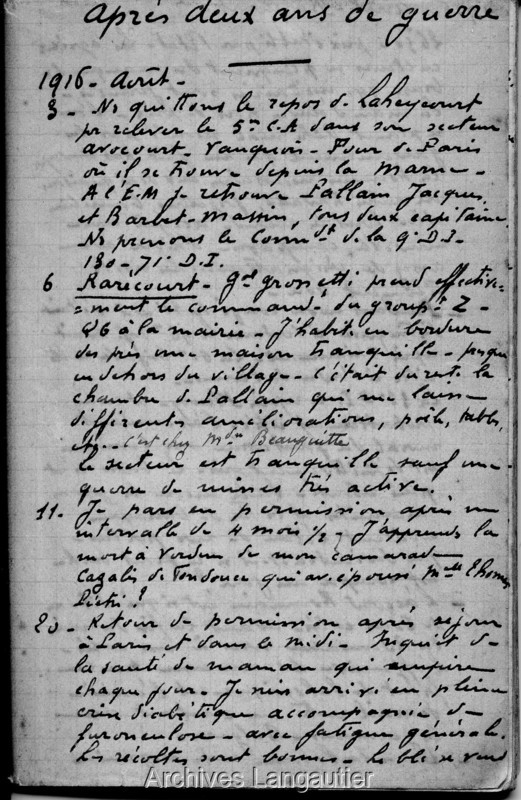 Après deux ans de guerre
1916 - Août -
3 - Ns quittons le repos de Laheycourt
pr relever le 5me C.A dans son secteur
avocourt - Vauquois - Four de Paris
où il se trouve depuis la Marne -
A l'E.M je retrouve Lallain Jacques,
et Barbet-Massin, tous deux capitaine.
Ns prenons le Commdt de la 9e D.I -
130 - 71e D.I.
6 Rarécourt - Gal Grossetti prend effective=
=ment le commandt du groupt Z -
QG à la mairie - J'habite en bordure
des près une maison tranquille - presque
en dehors du village - C'était du reste la
chambre de Lallain qui me laisse
différentes améliorations, poêle, table,
etc - C'est chez Mme Beauguitte
Le secteur est tranquille sauf une
guerre de mines très active.
11 - Je pars en permission après un
intervalle de 4 mois 1/2 - J'apprends la
mort à Verdun de mon camarade
Cazalis de Fondouce qui av. épousé Mlle
Piétri ?
20 - Retour de permission après séjour
à Paris et dans le Midi - Inquiet de
la santé de maman qui empire
chaque jour - Je suis arrivé en pleine
crise diabétique accompagnée de
furonculose - avec fatigue générale.
Les récoltes sont bonnes - Le blé se vend
Archives Langautier